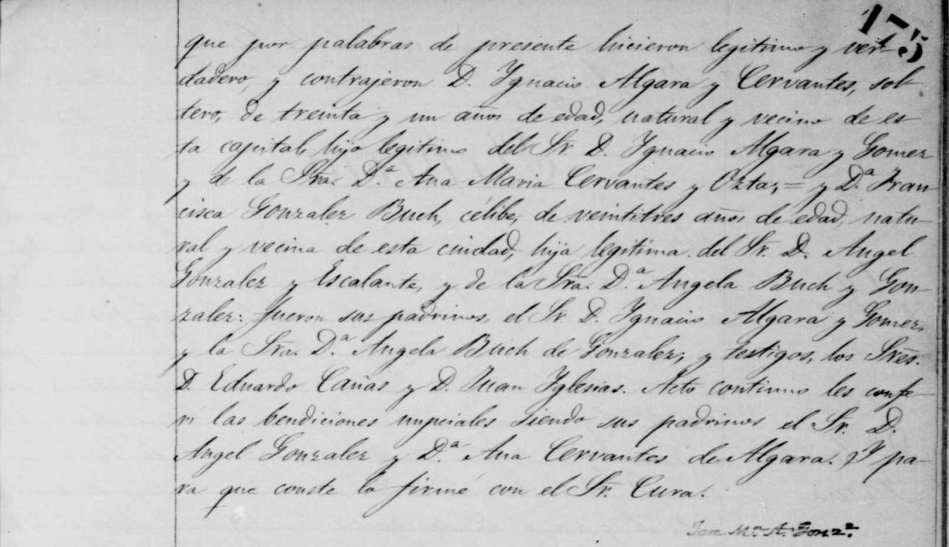 175
que por palabras de presente hicieron legitimo y ver-
dadero, y contrajeron D. Ygnacio Algara y Cervantes, sol-
tero, de treinta y un años de edad, natural y vecino de es-
ta capital, hijo legitimo del Sr. D. Ygnacio Algara y Gomez
y de la Sra. D.ª Ana Maria Cervantes y Ozta, = y D.ª Fran-
cisca Gonzalez Buch, célibe, de veintitres años de edad, natu-
ral y vecina de esta cuidad, hija legitima del Sr. D. Angel
Gonzalez y Escalante, y de la Sra. D.ª Angela Buch y Gon-
zalez: fueron sus padrinos, el Sr. D. Ygnacio Algara y Gomez,
y la Sra. D.ª Angela Buch de Gonzalez, y testigos, los Sres.
D. Eduardo Cañas y D. Juan Yglesias. Acto continuo les confe-
rí las bendiciones nupciales siendo sus padrinos el Sr. D.
Angel Gonzalez y D.ª Ana Cervantes de Algara. Y pa-
ra que conste lo firmé con el Sr. Cura.
M.ª A. Gonz.z